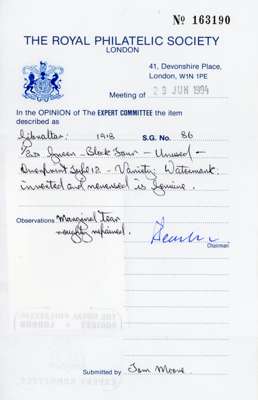 No 163190
THE ROYAL PHILATELIC SOCIETY
LONDON
41, Devonshire Place,
London, W1N 1PE
Meeting of 23 JUN 1994
In the OPINION of The EXPERT COMMITTEE the item
described as
Gibraltar: 1918 S.G. No. 86
½d Green - Block Four - Unused -
Overprint Type 12 - Variety Watermark
inverted and reversed is genuine.
Observations Marginal tear
roughly repaired.
Chairman
Submitted by Tom Moore